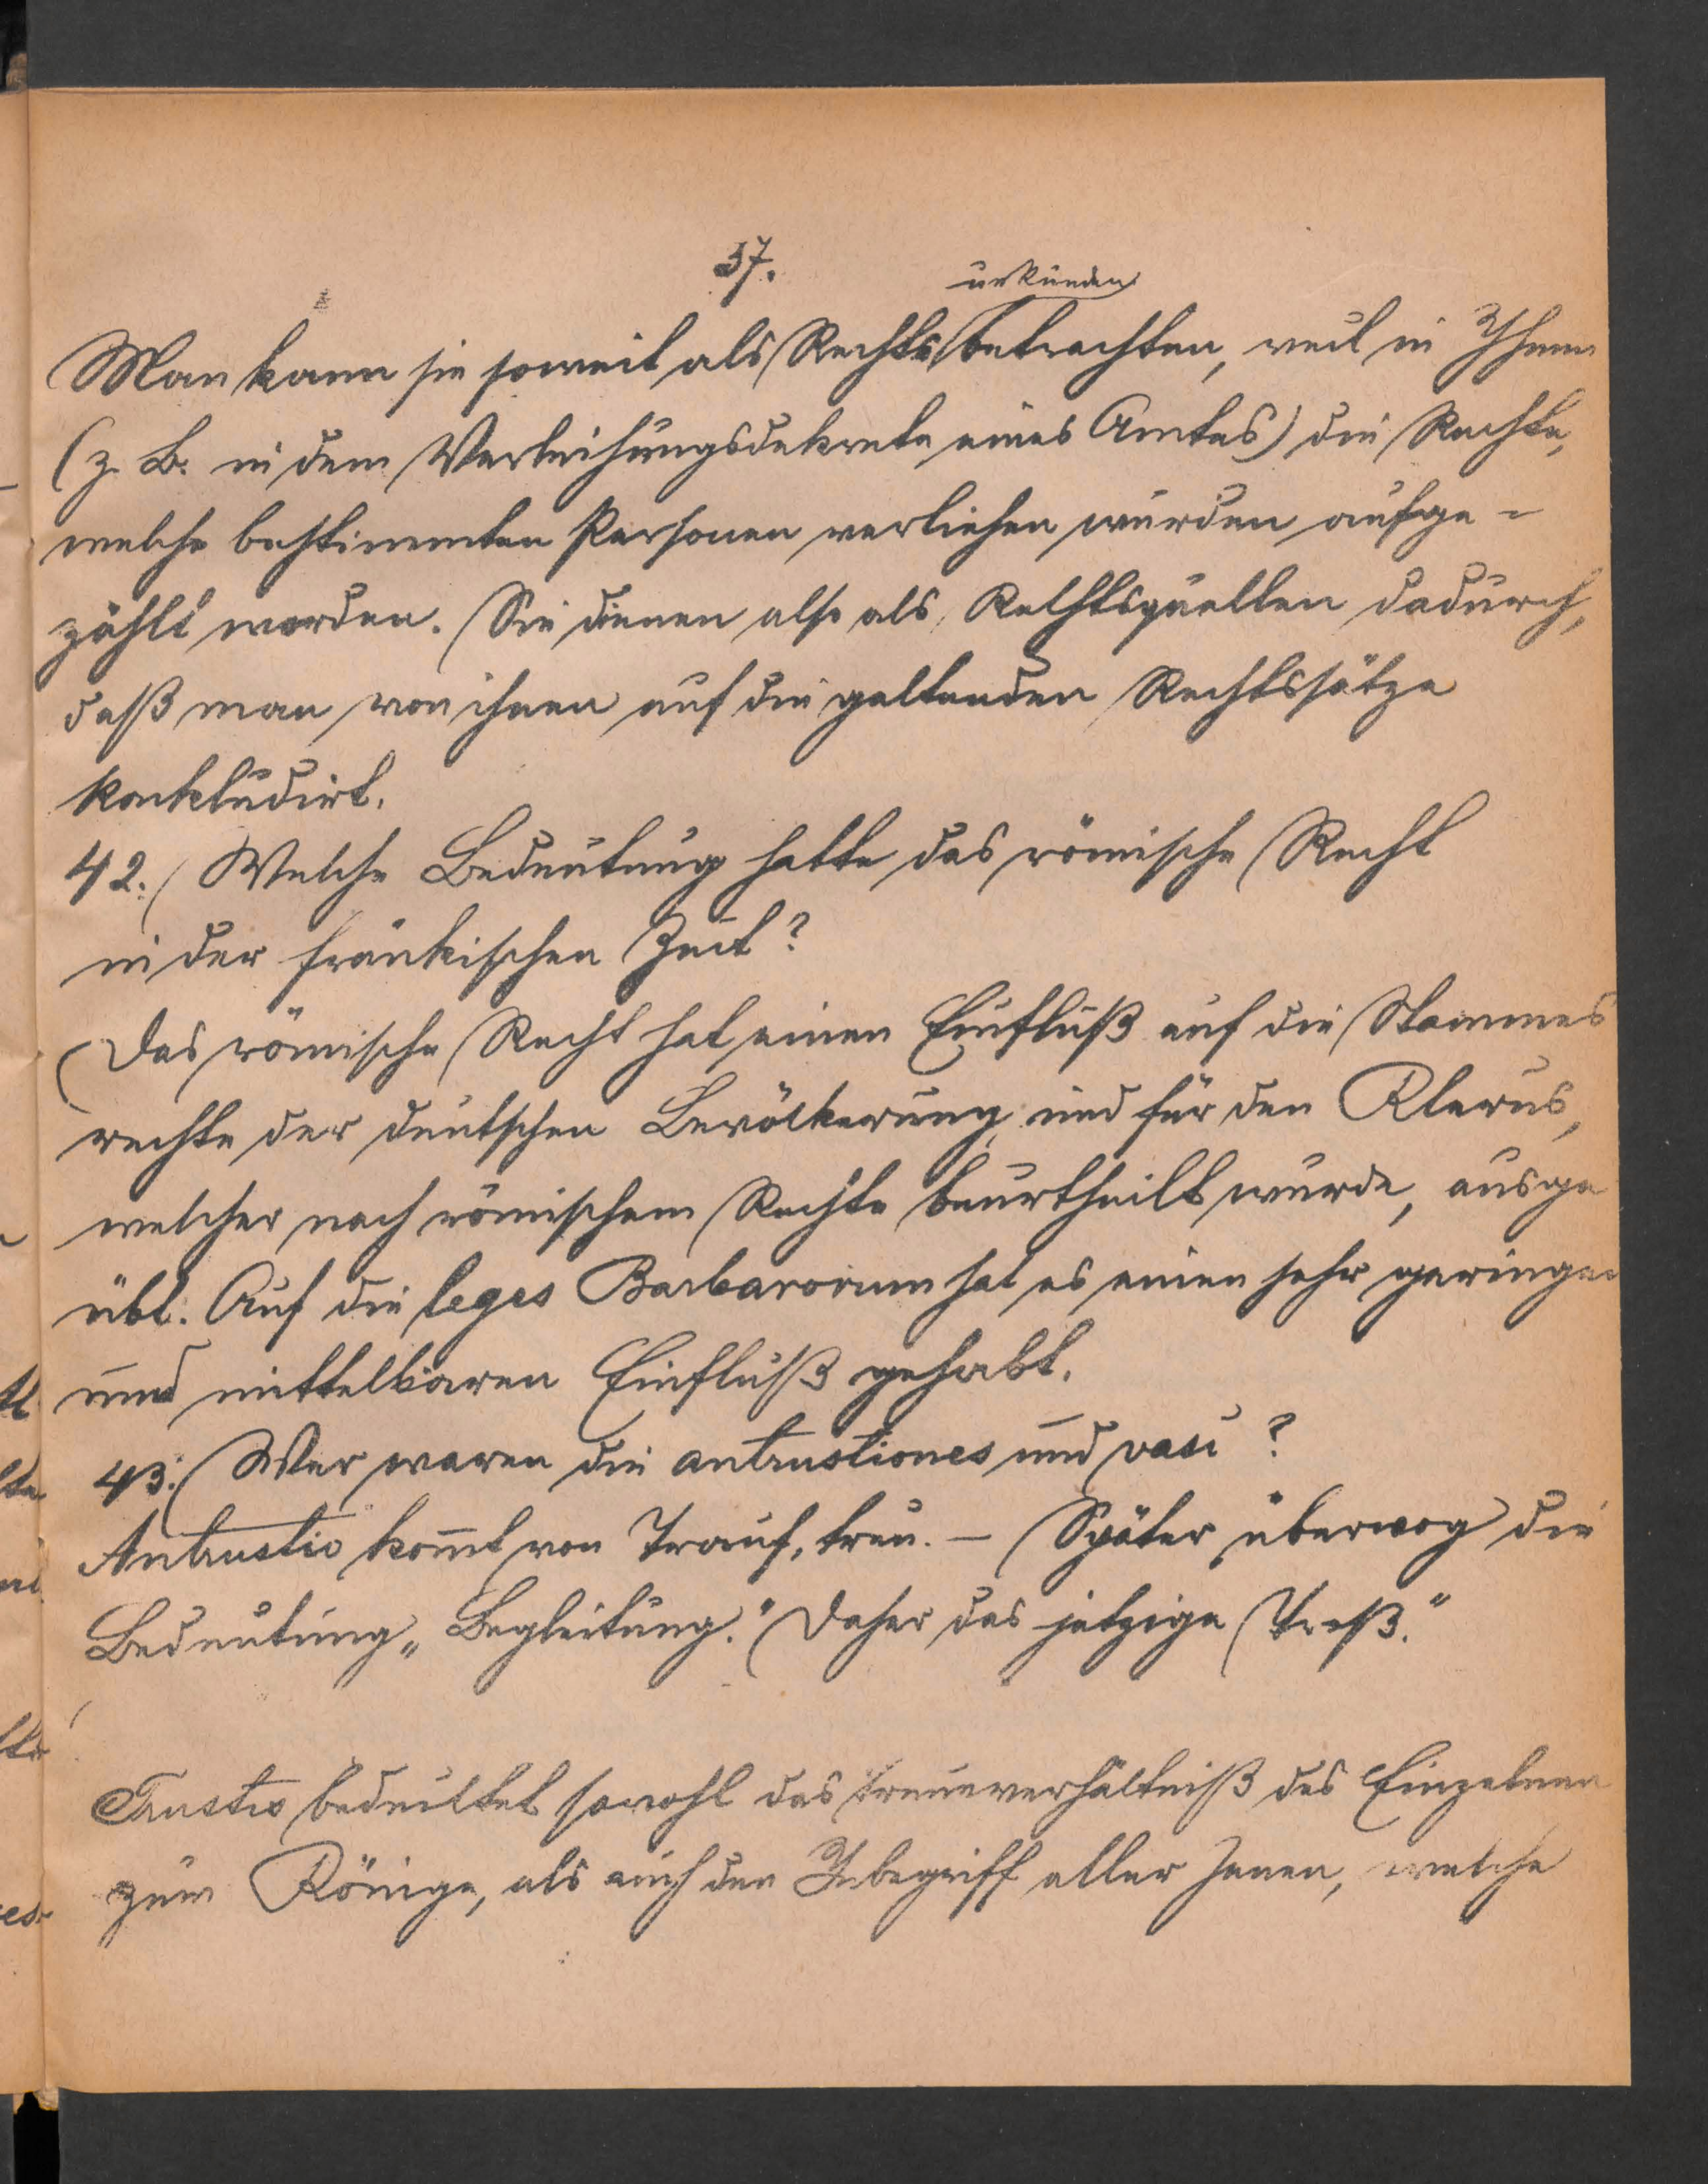 37.
urkunden
Man kann sie soweit als Rechts betrachten, weil in Ihnen
(z. B. in dem Verleihungsdekrete eines Amtes) die Rechte,
welche bestimmten Personen verliehen wurden aufge-
zählt werden. Sie dienen also als Rechtsquellen dadurch,
daß man von ihnen auf die geltenden Rechtssätze
konkludirt.
42. Welche Bedeutung hatte das römische Recht
in der fränkischen Zeit?
Das römische Recht hat einen Einfluß auf die Stammes
rechte der deutschen Bevölkerung und für den Klerus,
welcher nach römischem Rechte beurtheilt wurde, ausge
übt. Auf die leges Barbarorum hat es einen sehr geringen
und mittelbaren Einfluß gehabt.
43. Wer waren die antrustiones und vasi?
Antrustio kom̄t von treu. – Später überwog die
Bedeutung „Begleitung." Daher das jetzige Troß."
Trustis bedeutet sowohl das Treueverhältniß des Einzelnen
zum Könige, als auch den Inbegriff aller Jenen, welche